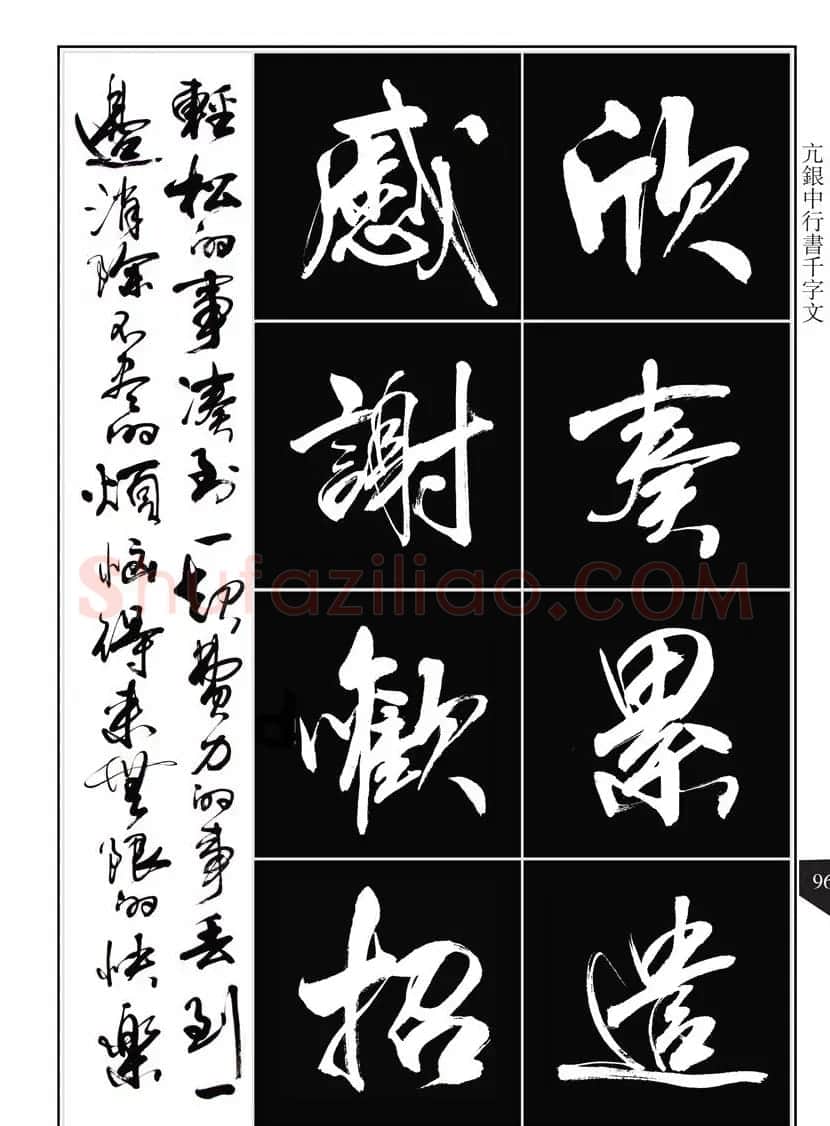 亢銀中行書千字文
96
欣奏累遣
慼謝歡招
輕松的事凑到一起費力的事丢到一
邊消除不尽的煩恼得来無限的快樂
Shufaziliao.COM